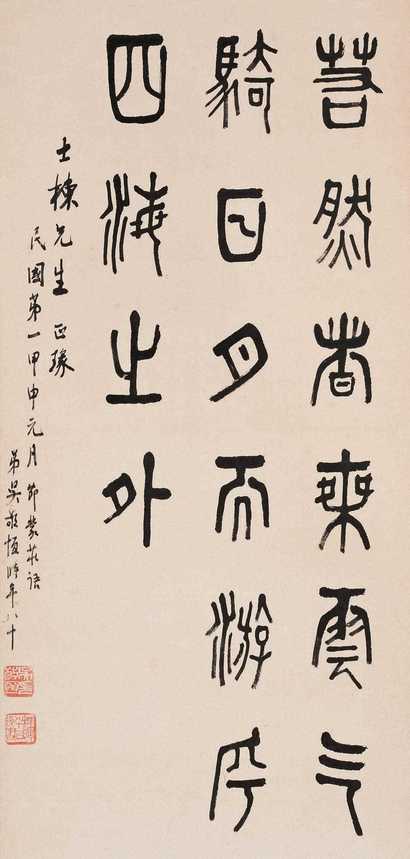 若然者乘雲气
騎日月而游乎
四海之外
士棟先生正瑑
民國第一甲申元月節蒙莊語
弟吳敬恆時年八十